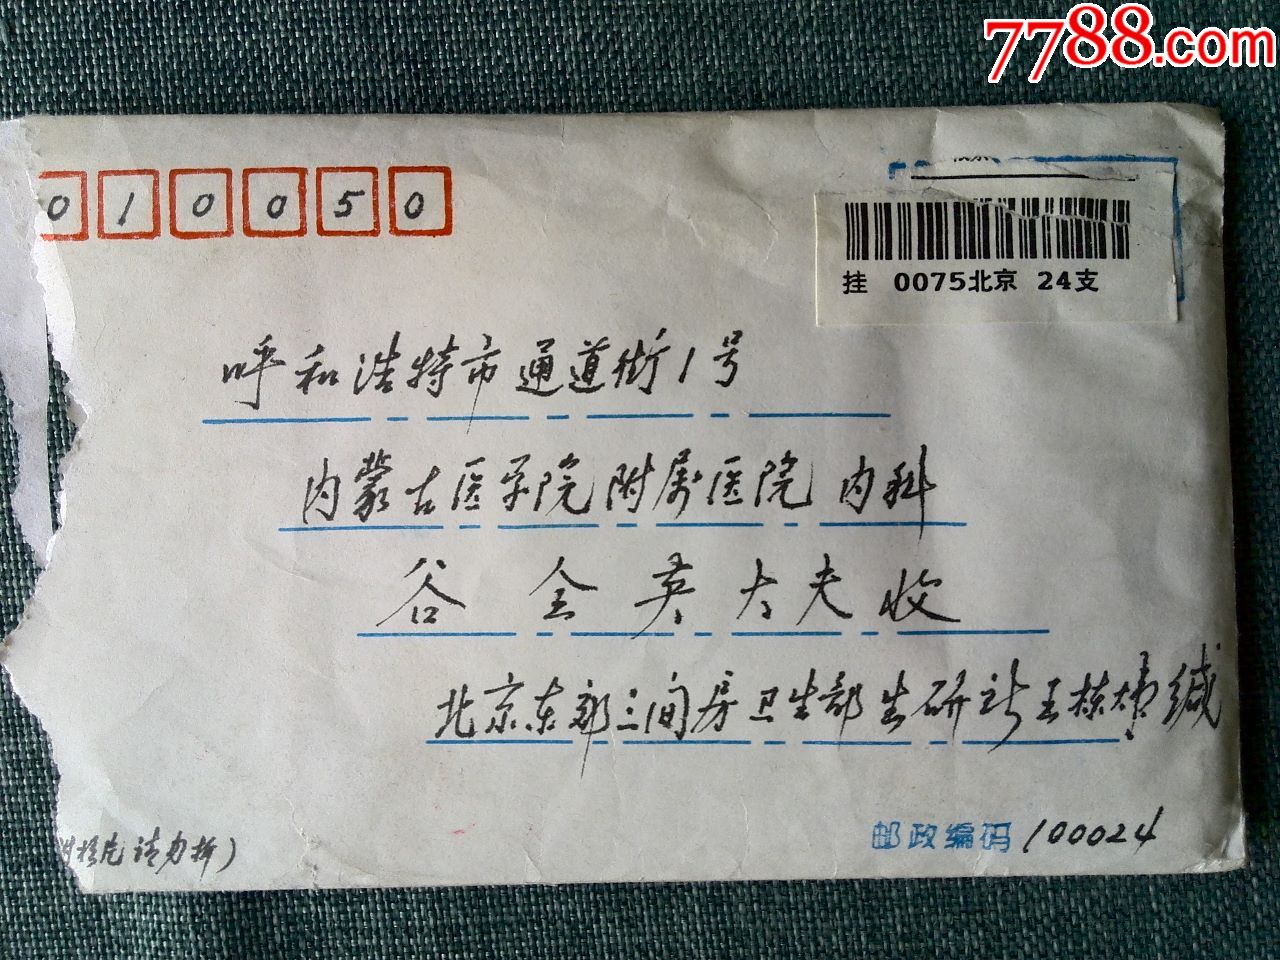 7788.com
010050
挂 0075北京 24支
呼和浩特市通道街1号
内蒙古医学院附属医院内科
谷全英大夫收
北京东郊三间房卫生部生研所王栋 缄
请勿拆）
邮政编码 100024